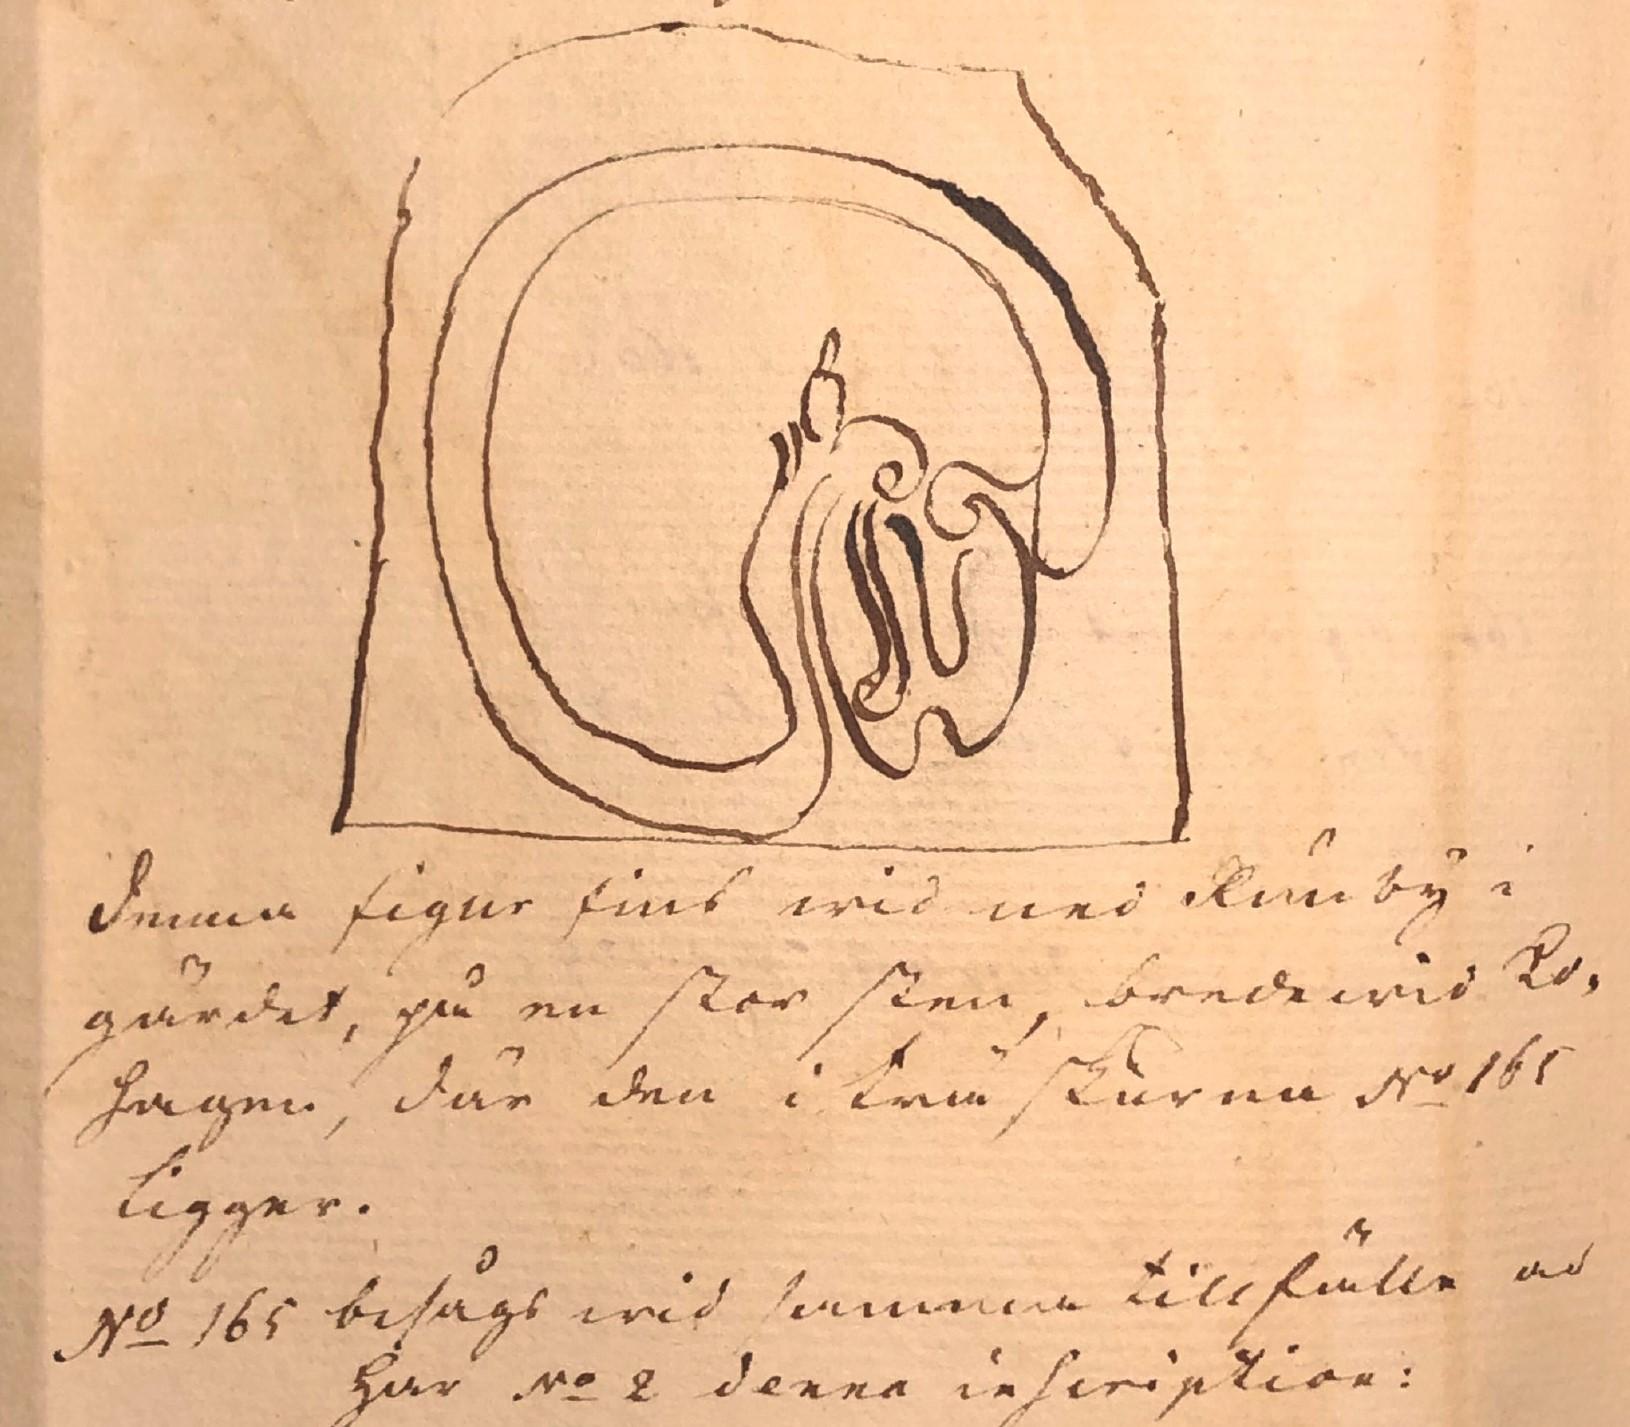 denna figur fins wid ned Runby i
gärdet, på en stor sten, bredewid Ko,
hagen, där den i trä skurna No 165
ligger.
No 165 besågs wid samma tillfälle ad
har No 2 denna inscription: